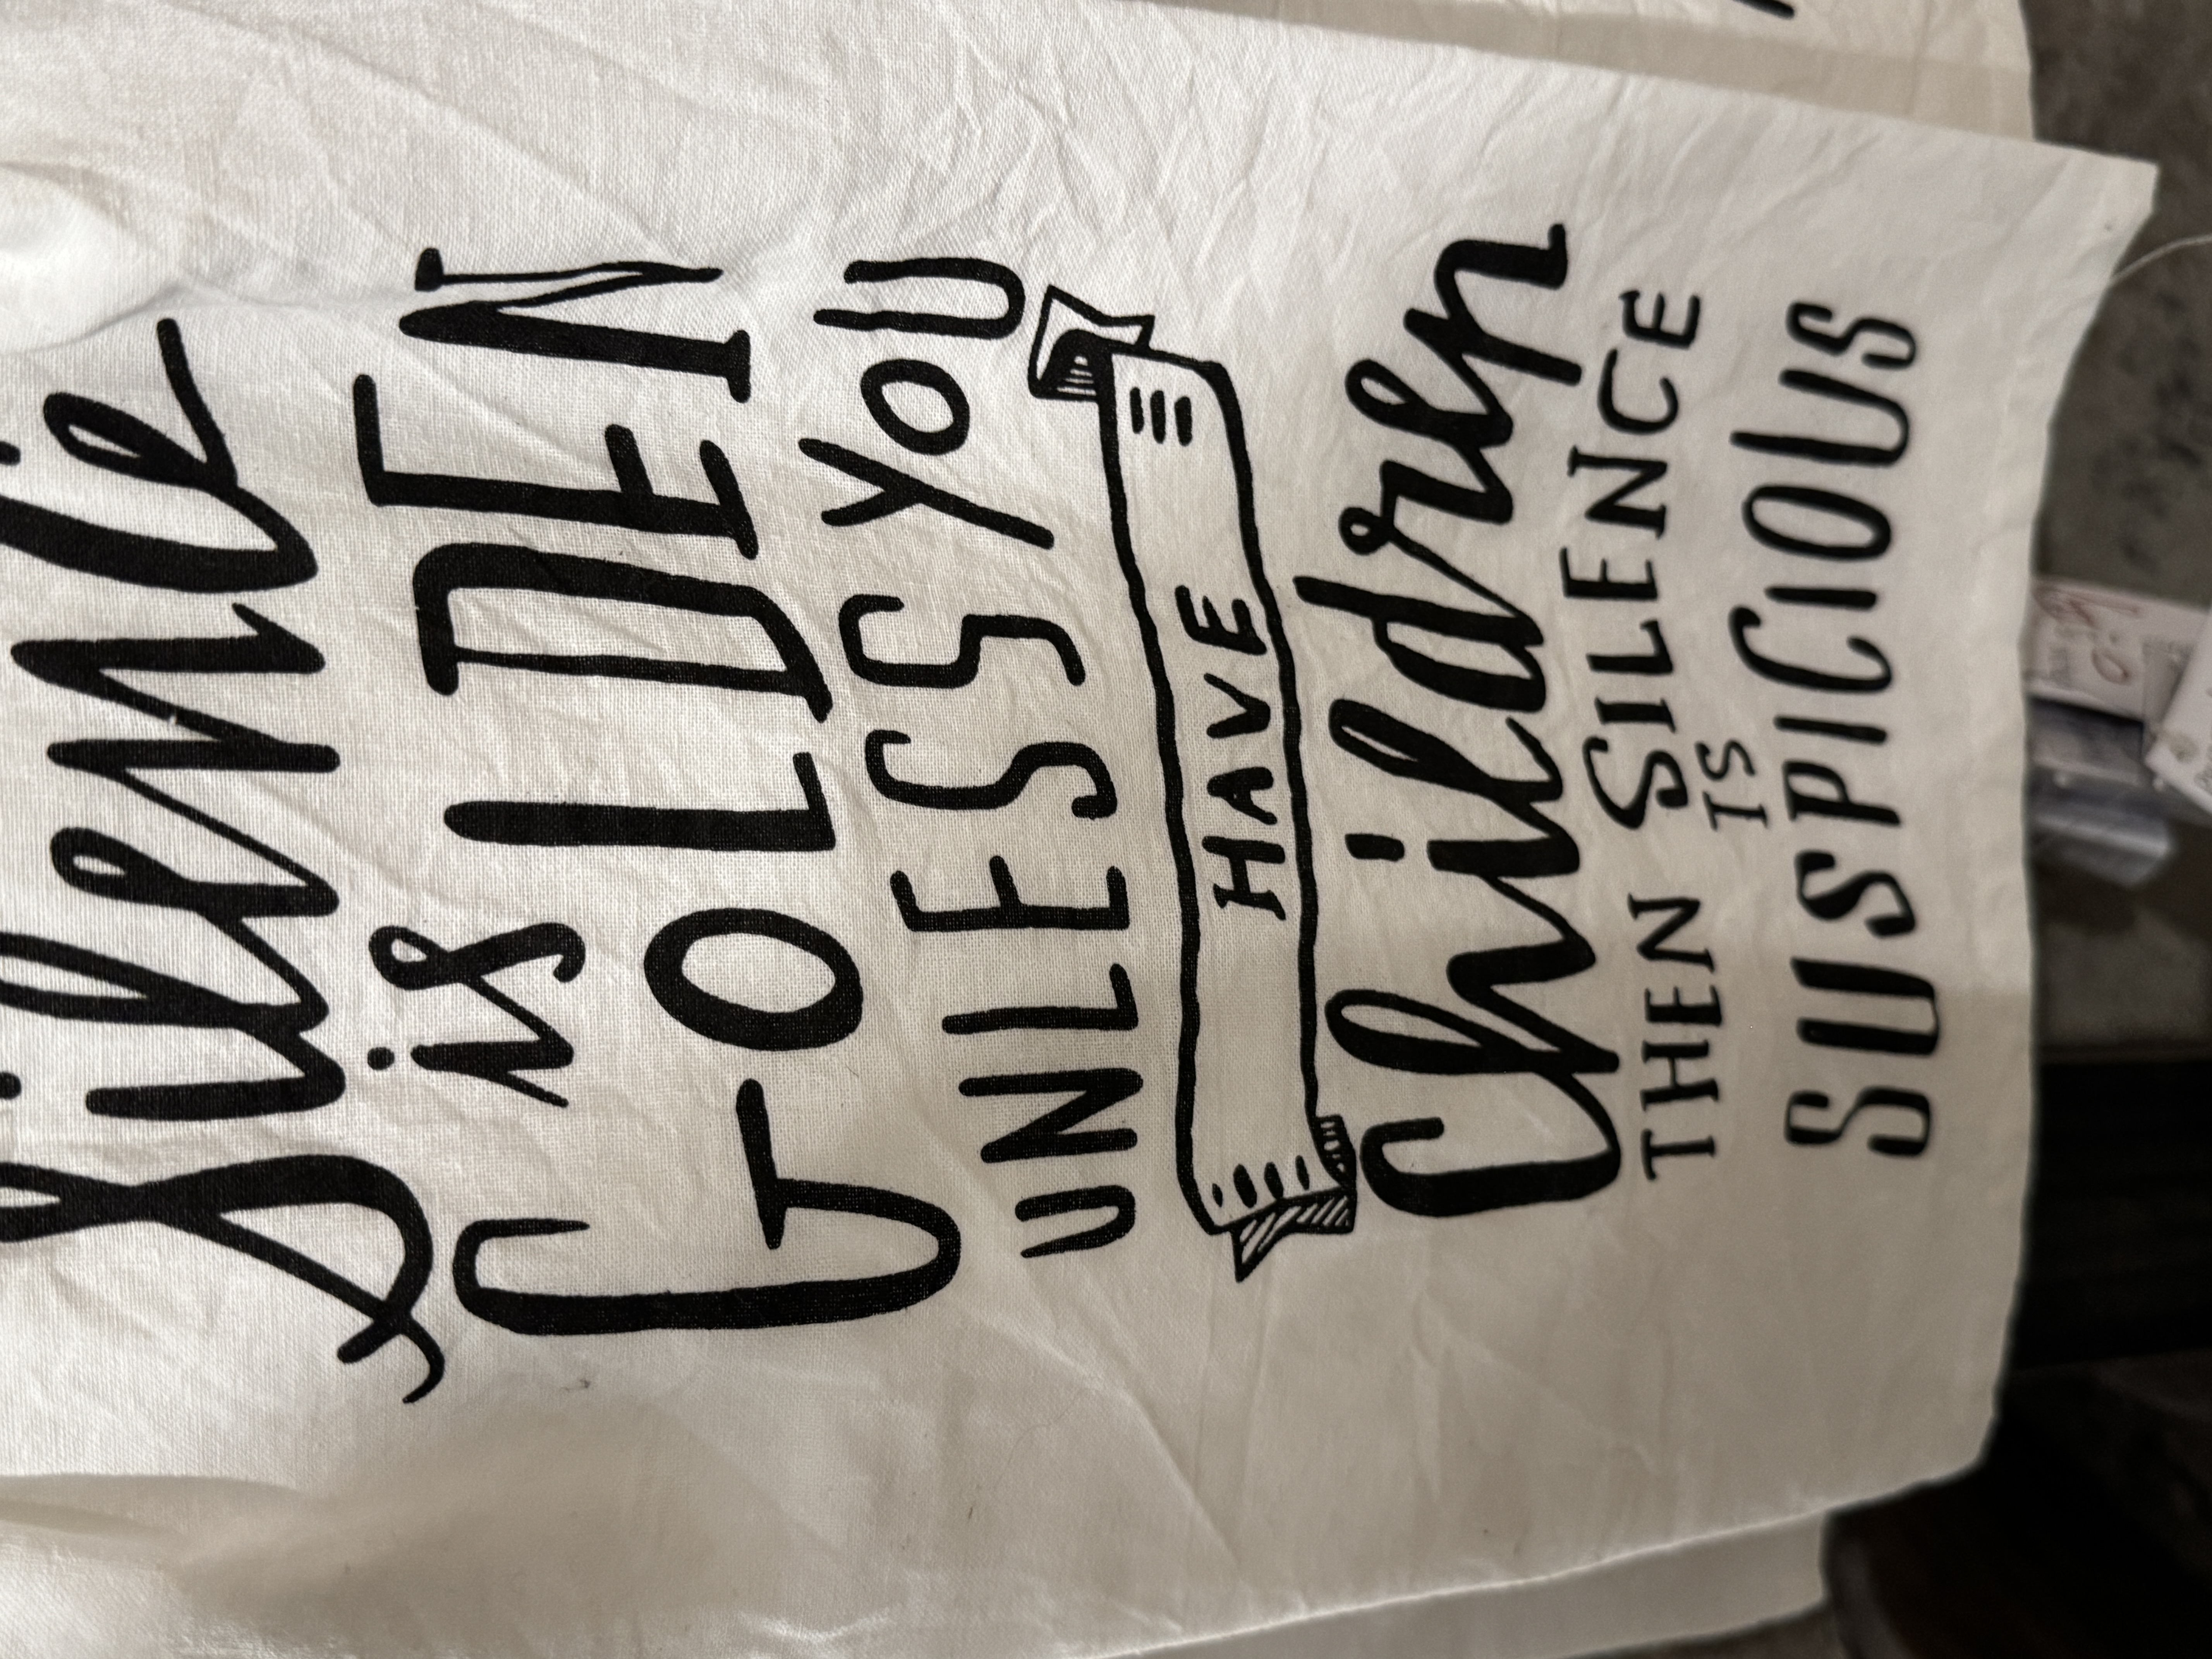 Silence
is
GOLDEN
UNLESS YOU
HAVE
Children
THEN SILENCE
IS
SUSPICIOUS